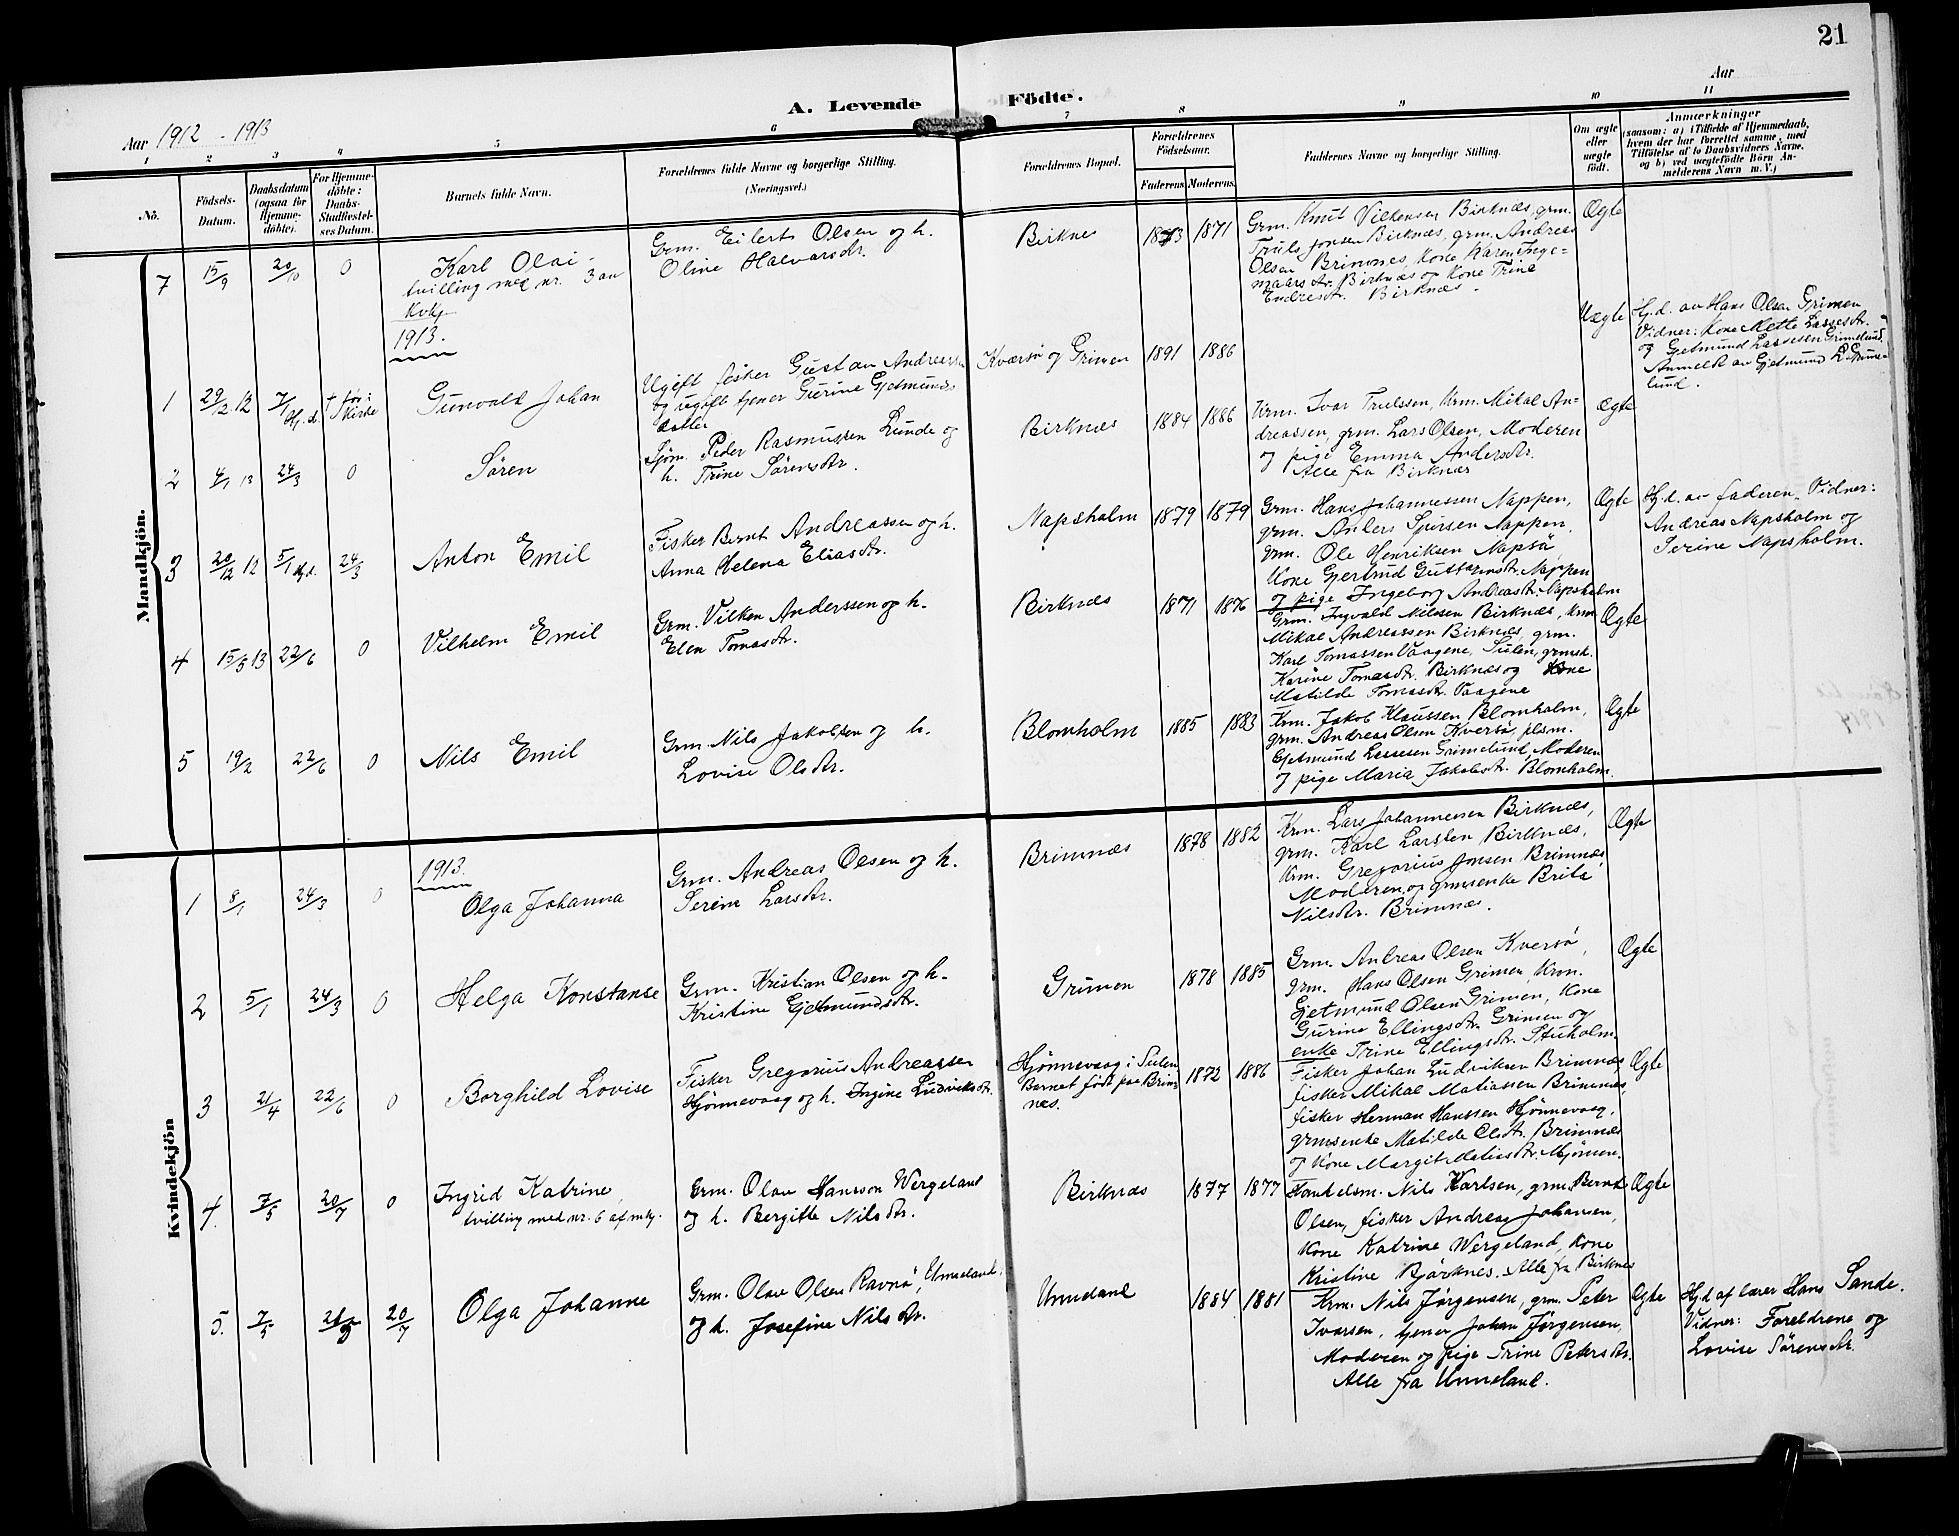 21
A. Levende Födte.
Aar 1912 - 1913
Aar
1 2 3 4 5 6 7 8 9 10 11
No.
Födsels-
Datum.
Daabsdatum
(ogsaa for
Hjemme-
döbte).
For Hjemme-
döbte:
Daabs-
Stadfæstel-
ses Datum.
Barnets fulde Navn.
Forældrenes fulde Navne og borgerlige Stilling.
(Næringsvei.)
Forældrenes Bopæl.
Forældrenes
Födselsaar.
Faderens. Moderens.
Faddernes Navne og borgerlige Stilling.
Om ægte
eller
uægte
födt.
Anmærkninger
(saasom: a) i Tilfælde af Hjemmedaab,
hvem der har forrettet samme, med
Tilföielse af to Daabsvidners Navne,
og b) ved uægtefödte Börn An-
melderens Navn m. V.)
Mandkjön.
7 15/9 20/10 0
Karl Olai -
tvilling med nr. 3 av
Kvkj.
Grm. Eilert Olsen og h.
Oline Halvarsdtr.
Birknes
1873 1871
Grm. Knut Vilkensen Birknæs, grm.
Truls Jonsen Birknæs, grm. Andreas
Olsen Brimnes, Kone Karen Inge-
maarsdtr. Birknæs og Kone Trine
Endresdtr. Birknæs.
Ægte
1913.
1 29/12 12 7/1 Hj.d. + før i Kirke
Gunvald Johan
Ugift fisker Gustav Andreassen
og ugift tjener Gurine Gjetmunds-
datter
Kværsø og Grimen
1891 1886
Uægte
Hj.d. av Hans Olsen Grimen
Vidner: Kone Mette Lassesdtr.
og Gjetmund Lassesen Grimelund.
Anmeldt av Gjetmund L. Grime-
lund.
2 4/1 13 24/3 0
Søren
Sjøm. Peder Rasmussen Lunde og
h. Trine Sørensdtr.
Birknæs
1884 1886
Krm. Ivar Trulssen, Krm. Mikal An-
dreassen, grm. Lars Olsen, Moderen
og pige Emma Andersdtr.
Alle fra Birknæs
Ægte
3 20/12 12 5/1 Hj.d. 24/3
Anton Emil
Fisker Bernt Andreassen og h.
Anna Helena Eliasdtr.
Napsholm
1879 1879
Grm. Hans Johannessen Nappen,
grm. Anders Sjursen Nappen,
grm. Ole Henriksen Napsø,
Kone Gjertrud Guttormsdtr. Nappen
og pige Ingeborg Andreasdtr. Napsholm
Ægte
Hj.d. av faderen. Vidner:
Andreas Napsholm og
Serine Napsholm.
4 15/3 13 22/6 0
Vilhelm Emil
Grm. Vilken Anderssen og h.
Elen Tomasdtr.
Birknæs
1871 1876
Grm. Ingvald Nilssen Birknæs, Krm.
Mikal Andreassen Birknæs, grm.
Karl Tomassen Vaagene, Sulen, grmsk.
Karine Tomasdtr. Birknæs og Kone
Matilde Tomasdtr. Vaagene
Ægte
5 19/2 22/6 0
Nils Emil
Grm. Nils Jakobsen og h.
Lovise Olsdtr.
Blomholm
1885 1883
Krm. Jakob Klaussen Blomholm,
grm. Andreas Olsen Kversø, plsm.
Gjetmund Lassesen Grimelund, Moderen
og pige Maria Jakobsdtr. Blomholm.
Ægte
Kvindekjön
1913.
1 8/1 24/3 0
Olga Johanna
Grm. Andreas Olsen og h.
Serine Larsdtr.
Brimnæs
1878 1882
Krm. Lars Johannessen Birknæs,
grm. Karl Larssen Birknæs,
Krm. Gregorius Jonsen Brimnæs
Moderen og grmsenke Brita
Nilsdtr. Brimnæs.
Ægte
2 5/1 24/3 0
Helga Konstanse
Grm. Kristian Olsen og h.
Kristine Gjetmundsdtr.
Grimen
1878 1885
Grm. Andreas Olsen Kversø,
grm. Hans Olsen Grimen, Krm.
Gjetmund Olsen Grimen, Kone
Gurine Ellingsdtr. Grimen og
enke Trine Ellingsdtr. Stuholm.
Ægte
3 21/4 22/6 0
Borghild Lovise
Fisker Gregorius Andreassen
Hjønnevaag og h. Ingine Ludviksdtr.
Hjønnevaag i Sulen
Barnet født paa Brim-
næs.
1872 1886
Fisker Johan Ludviksen Brimnæs
fisker Mikal Matiassen Brimnæs,
fisker Herman Hanssen Hjønnevaag,
grmsenke Matilde Olsdtr. Brimnæs
og Kone Margit Matiasdtr. Mjømen.
Ægte
4. 7/5 20/7 0
Ingrid Katrine,
tvilling med nr. 6 af mkj.
Grm. Olav Hansson Wergeland
og h. Bergitte Nilsdtr.
Birknæs
1877 1877
Handelsm. Nils Karlsen, grm. Bernt
Olsen, fisker Andreas Johansen,
Kone Katrine Wergeland, Kone
Kristine Bjørknes. Alle fra Birknes
Ægte
5. 7/5 20/7
Olga Johanne
Grm. Olav Olsen Ravnø, Unneland,
og h. Josefine Nilsdtr.
Unneland
1884 1881
Krm. Nils Jørgensen, grm. Peter
Ivarsen, tjener Johan Jørgensen,
Moderen og pige Trine Petersdtr.
Alle fra Unneland.
Ægte
Hj.d af lærer Hans Sande.
Vidner: Foreldrene og
Lovise Sørensdtr.